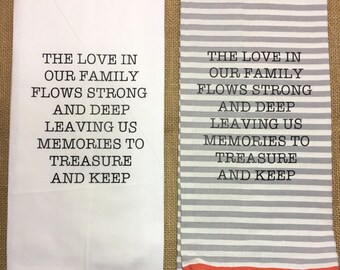 THE LOVE IN
OUR FAMILY
FLOWS STRONG
AND DEEP
LEAVING US
MEMORIES TO
TREASURE
AND KEEP
THE LOVE IN
OUR FAMILY
FLOWS STRONG
AND DEEP
LEAVING US
MEMORIES TO
TREASURE
AND KEEP